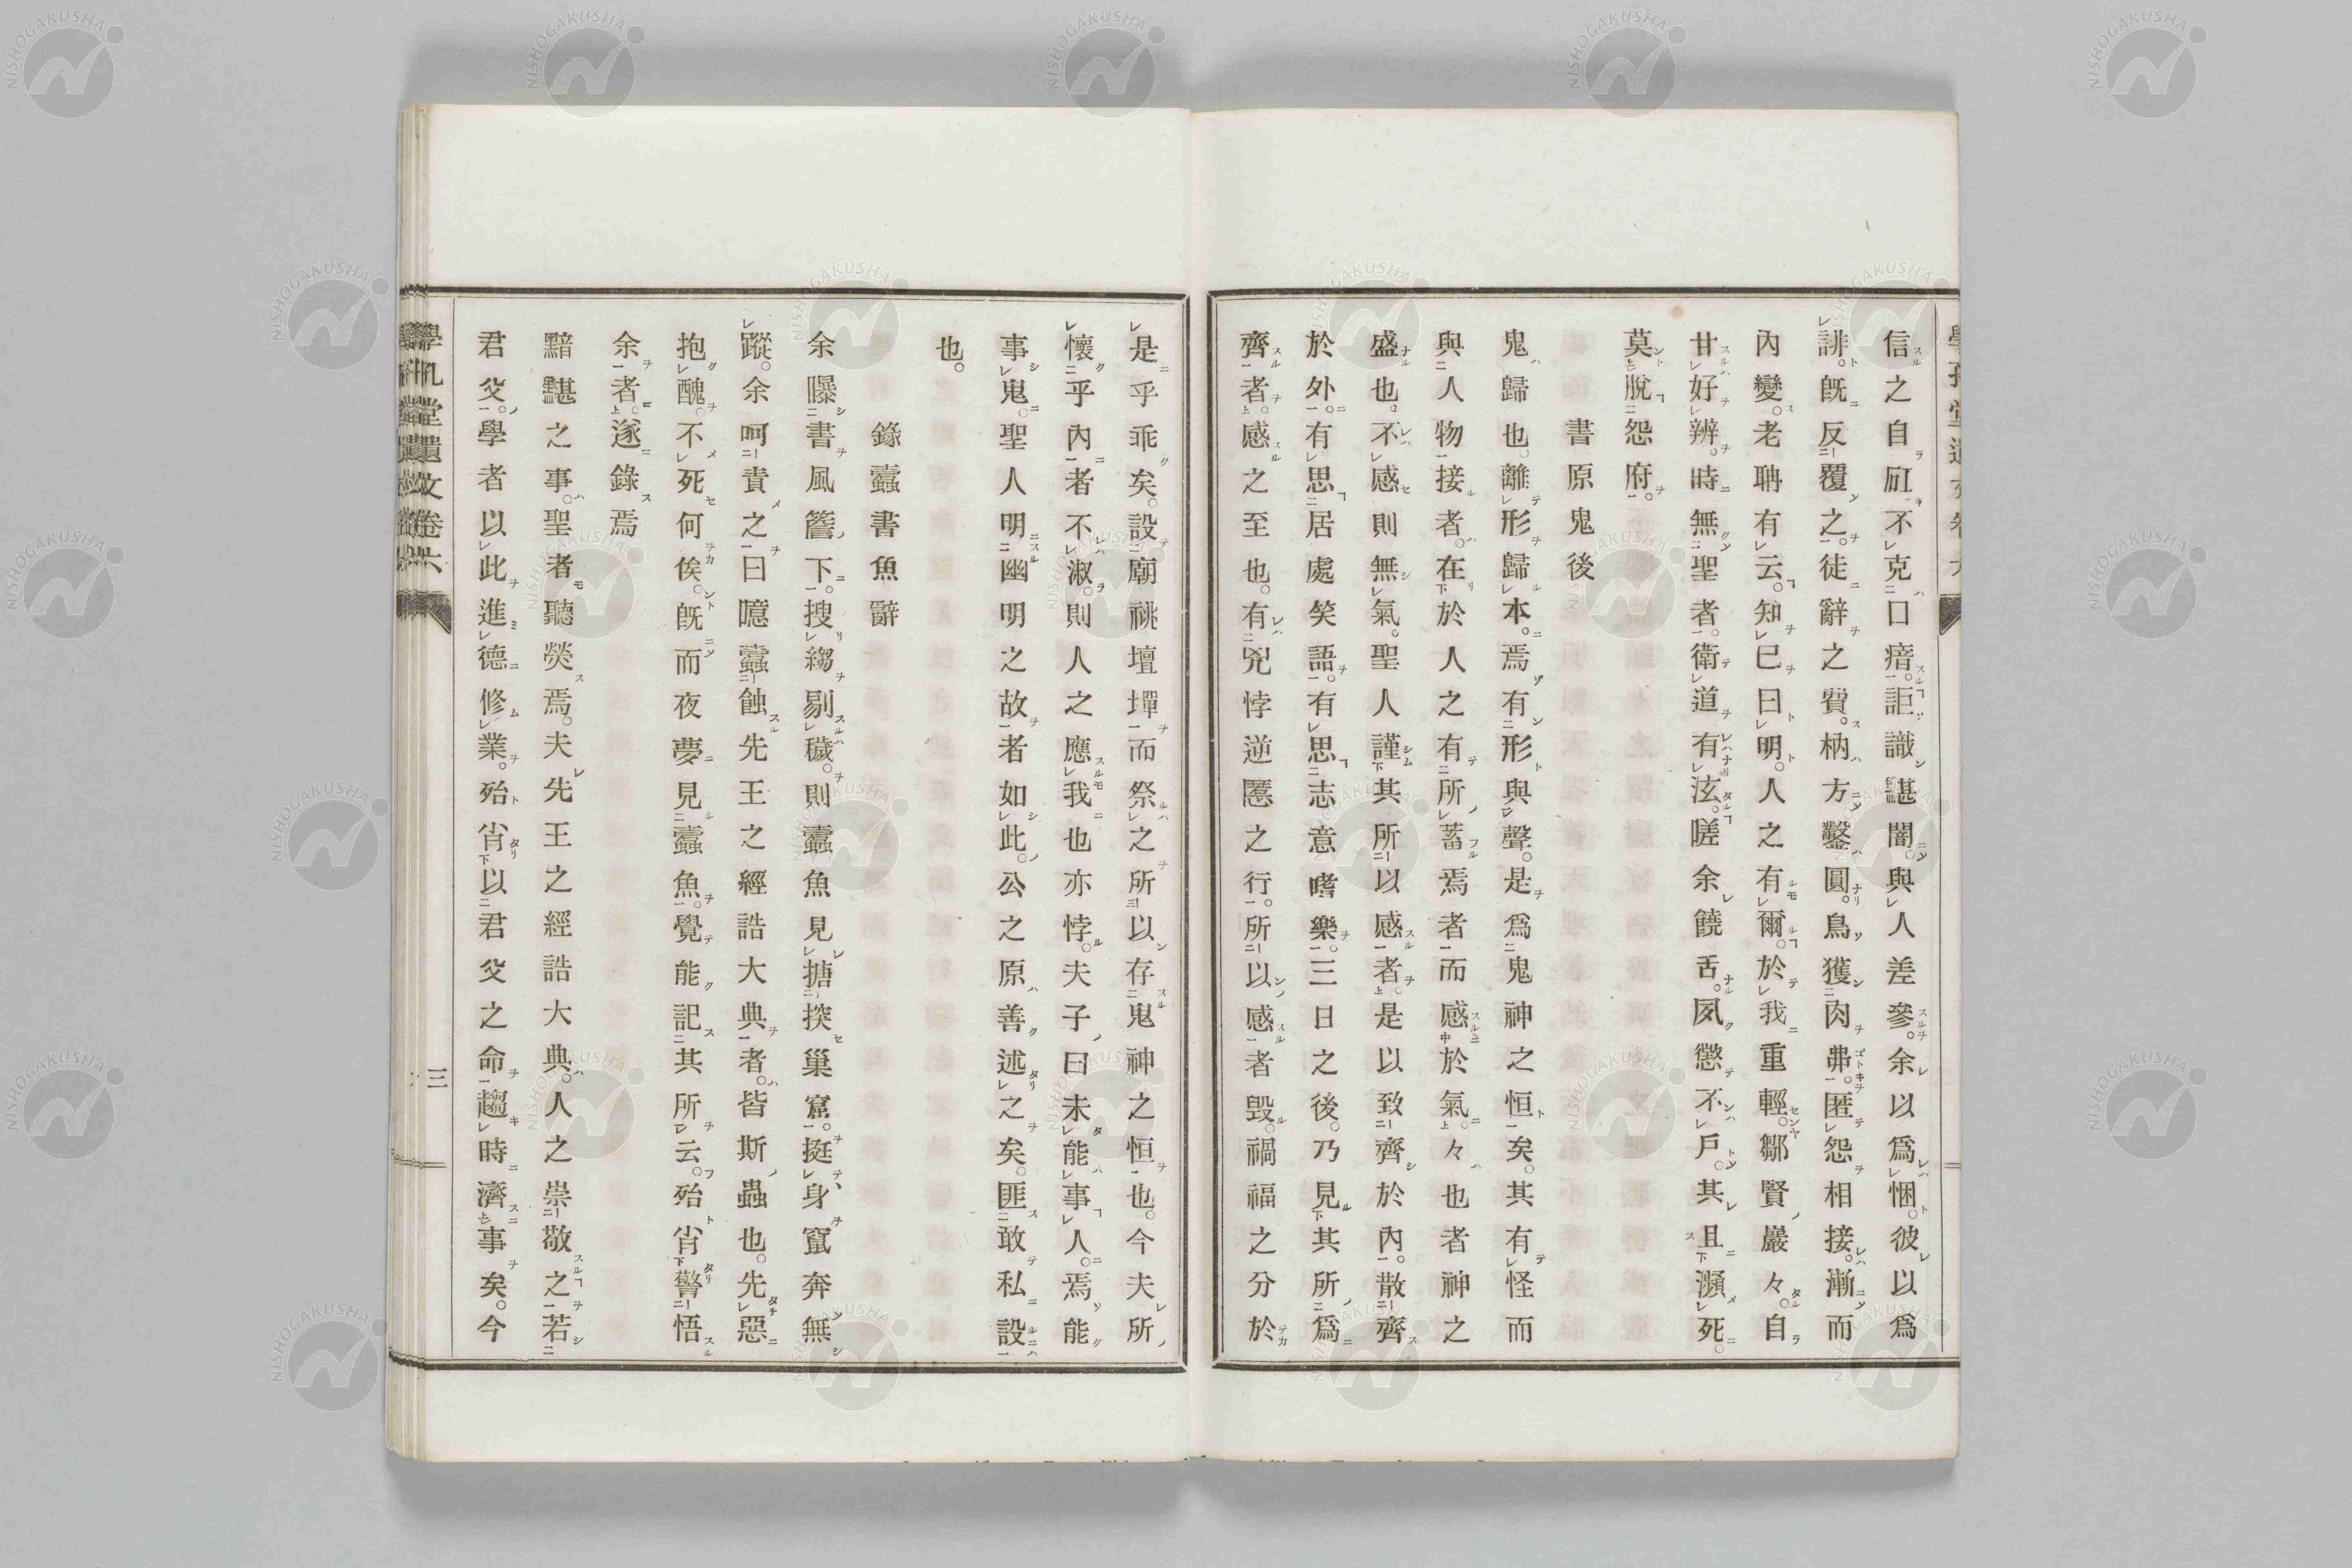 信之自瓩不克口瘖詎識諶闇與人差參余以爲悃彼以爲
誹旣反覆之徒辭之費枘方鑿圓鳥獲肉弗匿怨相接漸而
內變老聃有云知已曰明人之有爾於我重輕鄒賢嚴々自
甘好辨時無聖者衛道有泫嗟余饒舌夙懲不戶其且瀕死
莫脫怨府
書原鬼後
鬼歸也離形歸本焉有形與聲是爲鬼神之恒矣其有怪而
與人物接者在於人之有所蓄焉者而感於氣々也者神之
盛也不感則無氣聖人謹其所以感者是以致齊於內散齊
於外有思居處笑語有思志意嗜樂三日之後乃見其所爲
齊者感之至也有兇悖逆慝之行所以感者毀禍福之分於
是乎乖矣設廟祧壇墠而祭之所以存鬼神之恒也今夫所
懷乎內者不淑則人之應我也亦悖夫子曰未能事人焉能
事鬼聖人明幽明之故者如此公之原善述之矣匪敢私設
也
錄蠹書魚辭
余曝書風簷下搜縐剔穢則蠹魚見搪揬巢窟挺身竄奔無
蹤余呵責之曰噫蠹蝕先王之經誥大典者皆斯蟲也先惡
抱醜不死何俟旣而夜夢見蠹魚覺能記其所云殆肖警悟
余者遂錄焉
黯黮之事聖者聽熒焉夫先王之經誥大典人之崇敬之若
君父學者以此進德修業殆肖以君父之命趨時濟事矣今
學孔堂遺文卷六
三
NISHOGAKUSHA